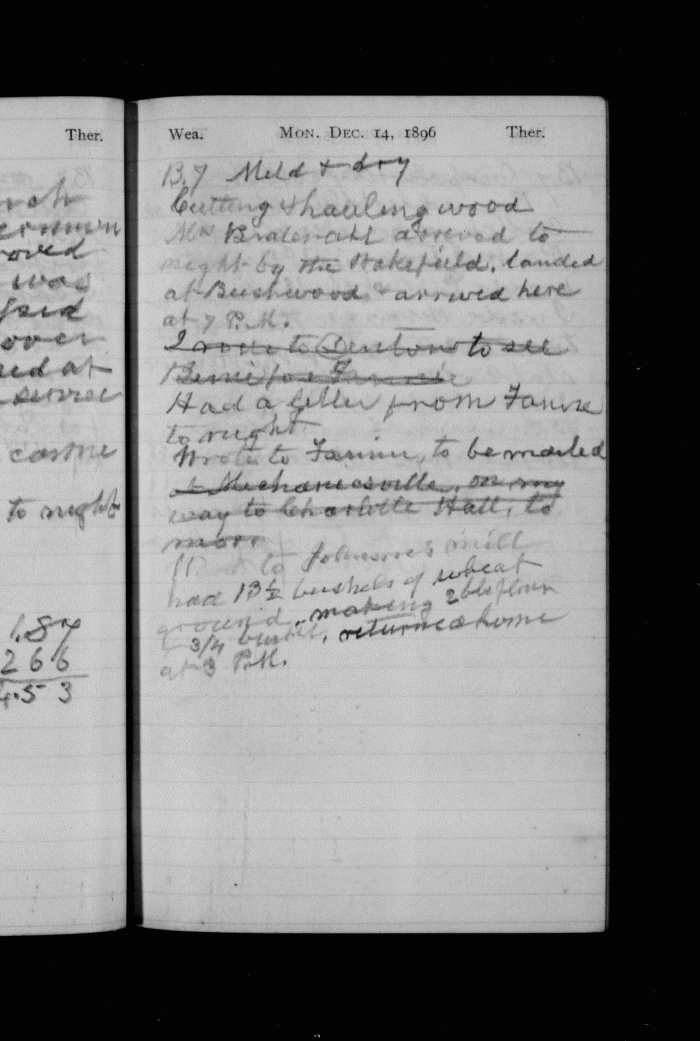 Ther.
to night
1.87
2 66
4.53
Wea. Mon. Dec. 14, 1896 Ther.
B.7 Mild & dry
Cutting & hauling wood
Mrs arrived to
night by the Wakefield, landed
at Bushwood & arrived here
at 7 P.M.
I rode to to see
for Fannie
Had a letter from Fannie
to night
Wrote to Fannie, to be mailed
at Mechanicsville, on my
way to Charlotte Hall, to
morr
Went to Johnson's mill
had 13 1/2 bushels of wheat
ground, making 2 bbls flour
& 3/4 bushel, returned home
at 3 P.M.